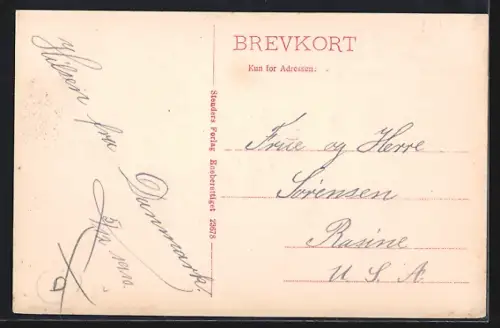 BREVKORT
Kun for Adressen.
Hilsen fra Danmark.
Stenders Forlag Eneberettiget 23678
Frue og Herre
Sörensen
Rasine
U. S. A.